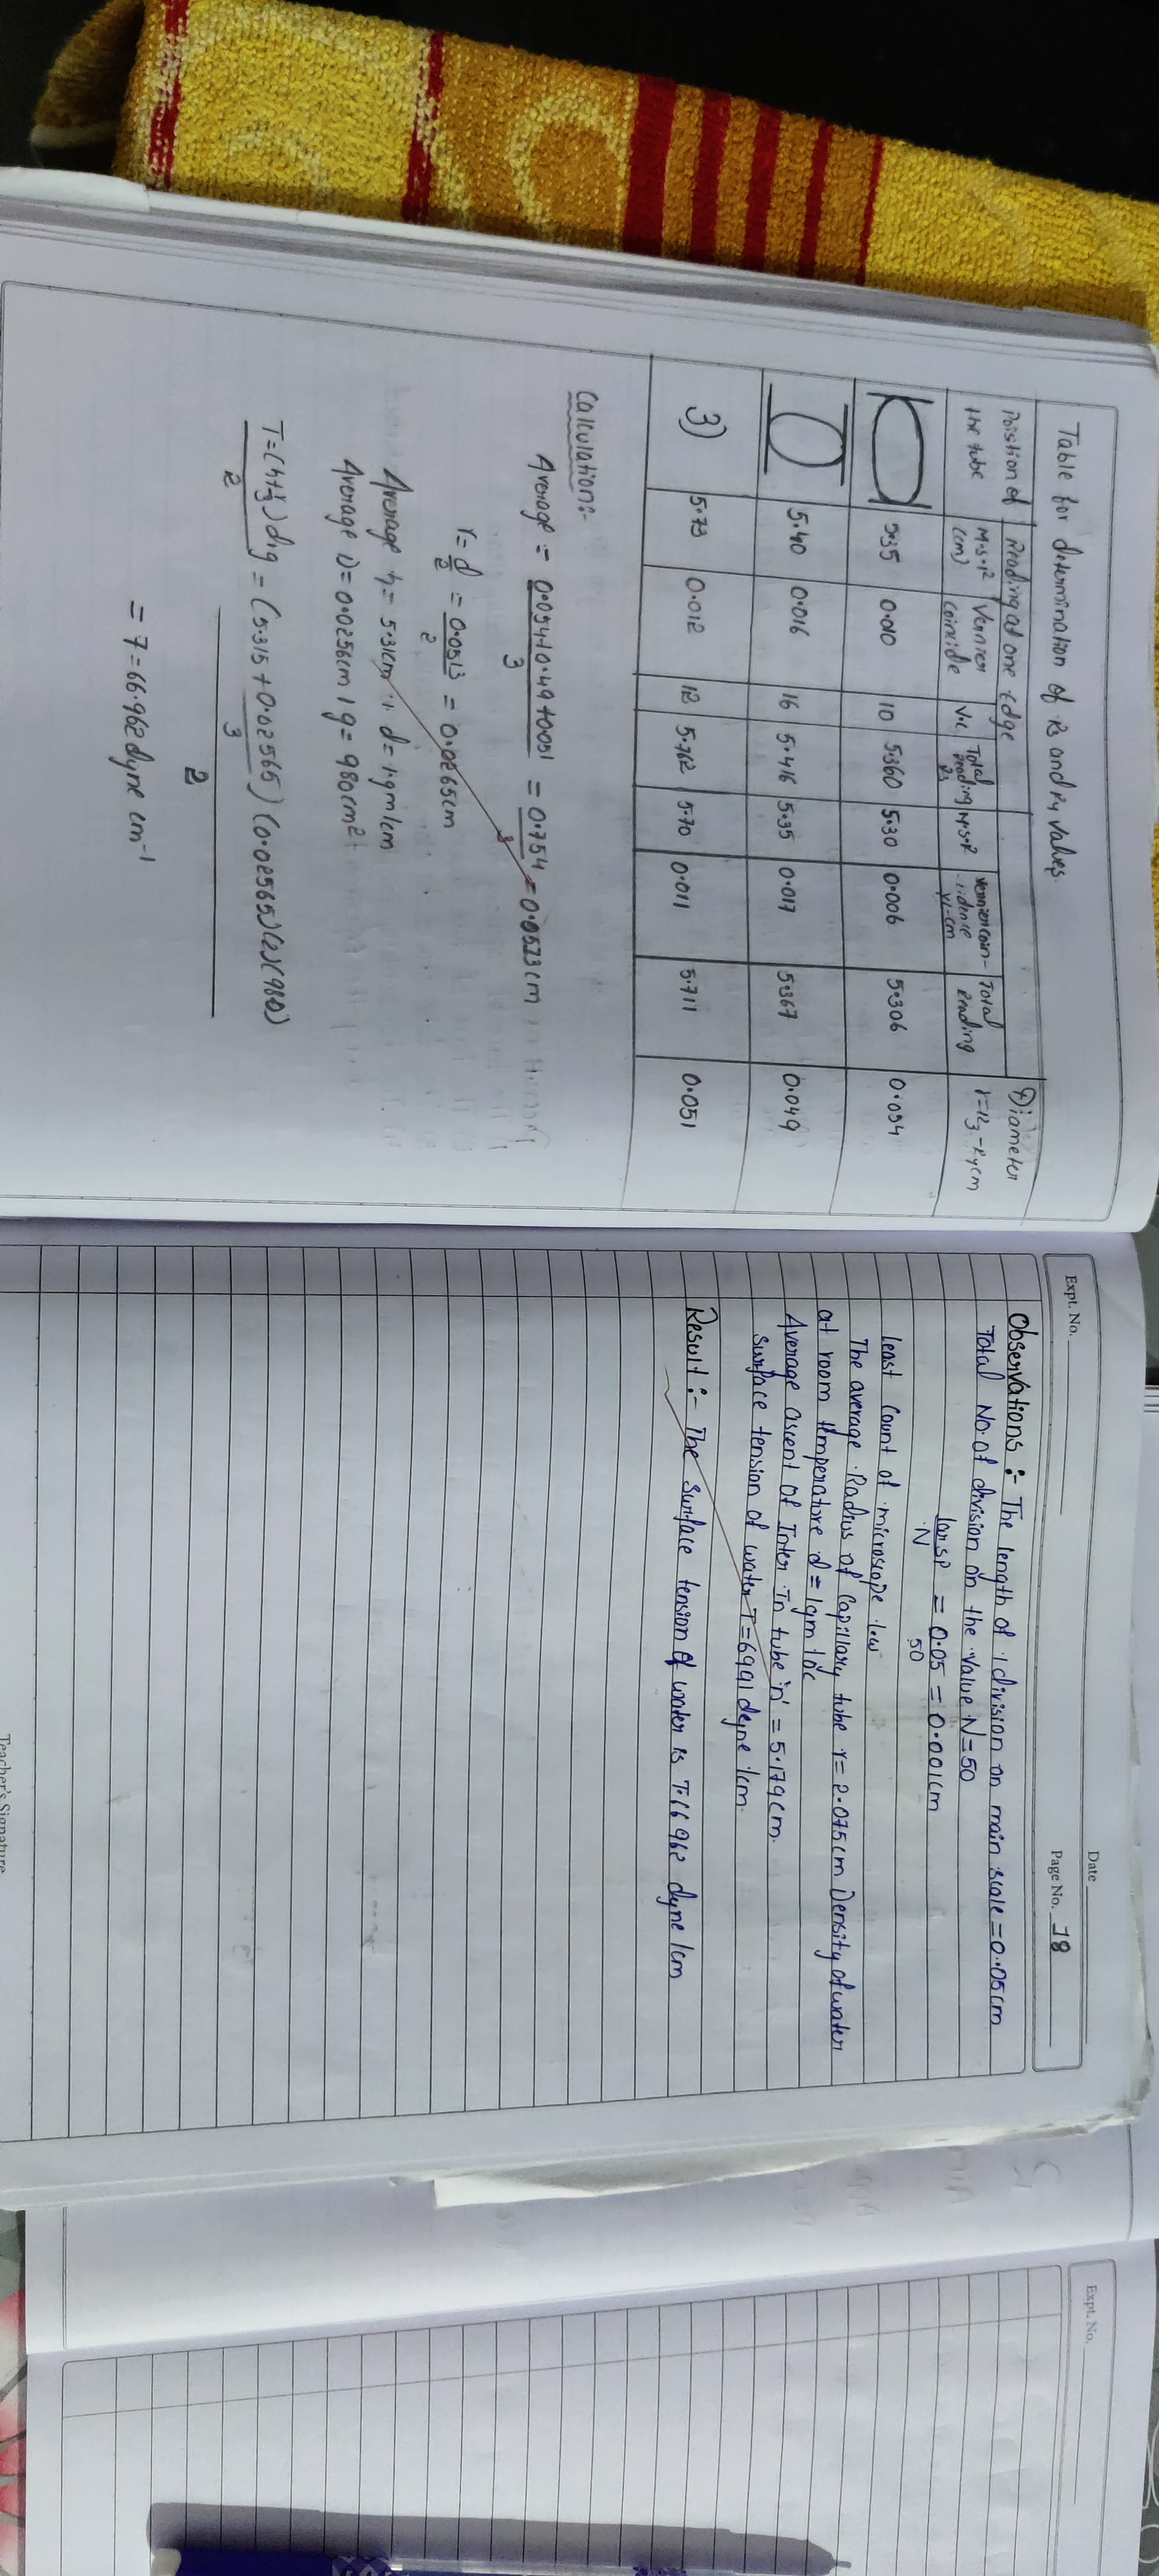 Table for determination of r3 and r4 values.
Poisition of the tube | Reading at one edge | Diameter r=r3-r4 cm
M·S·R (cm) | Vernier coincide | V·C | Total reading | M·S·R | Total Reading
5.35 | 0.010 | 10 | 5360 | 5.30 | 0.006 | 5.306 | 0.054
5.40 | 0.016 | 16 | 5.416 | 5.35 | 0.017 | 5.367 | 0.049
3) | 5.73 | 0.012 | 12 | 5.762 | 5.70 | 0.011 | 5.711 | 0.051
Calculation:-
Average = 0.054+0.49+0051 / 3 = 0.754 / 3 = 0.0523cm
r = d/2 = 0.0513 / 2 = 0.0265cm
Average h = 5.31cm d = 1.gm/cm
Average r = 0.0256cm g = 980cm²
T = (h+r/3) d r g / 2 = (5.315 + 0.02565 / 3) (0.02565)(1)(980) / 2
= 7 = 66.962 dyne cm⁻¹
Expt. No.
Date
Page No. 78
Observations :- The length of 1 division on main scale = 0.05cm
Total No. of division on the value N=50
1msp / N = 0.05 / 50 = 0.001cm
least count of microscope
The average Radius of Capillary tube r = 2.075cm Density of water
at room temperature d = 1gm
Average ascent of Inter In tube 'n' = 5.179cm.
surface tension of water T = 6991 deyne /cm.
Result :- The surface tension of water is T=66962 dyne /cm
Teacher's Signature
Expt. No.